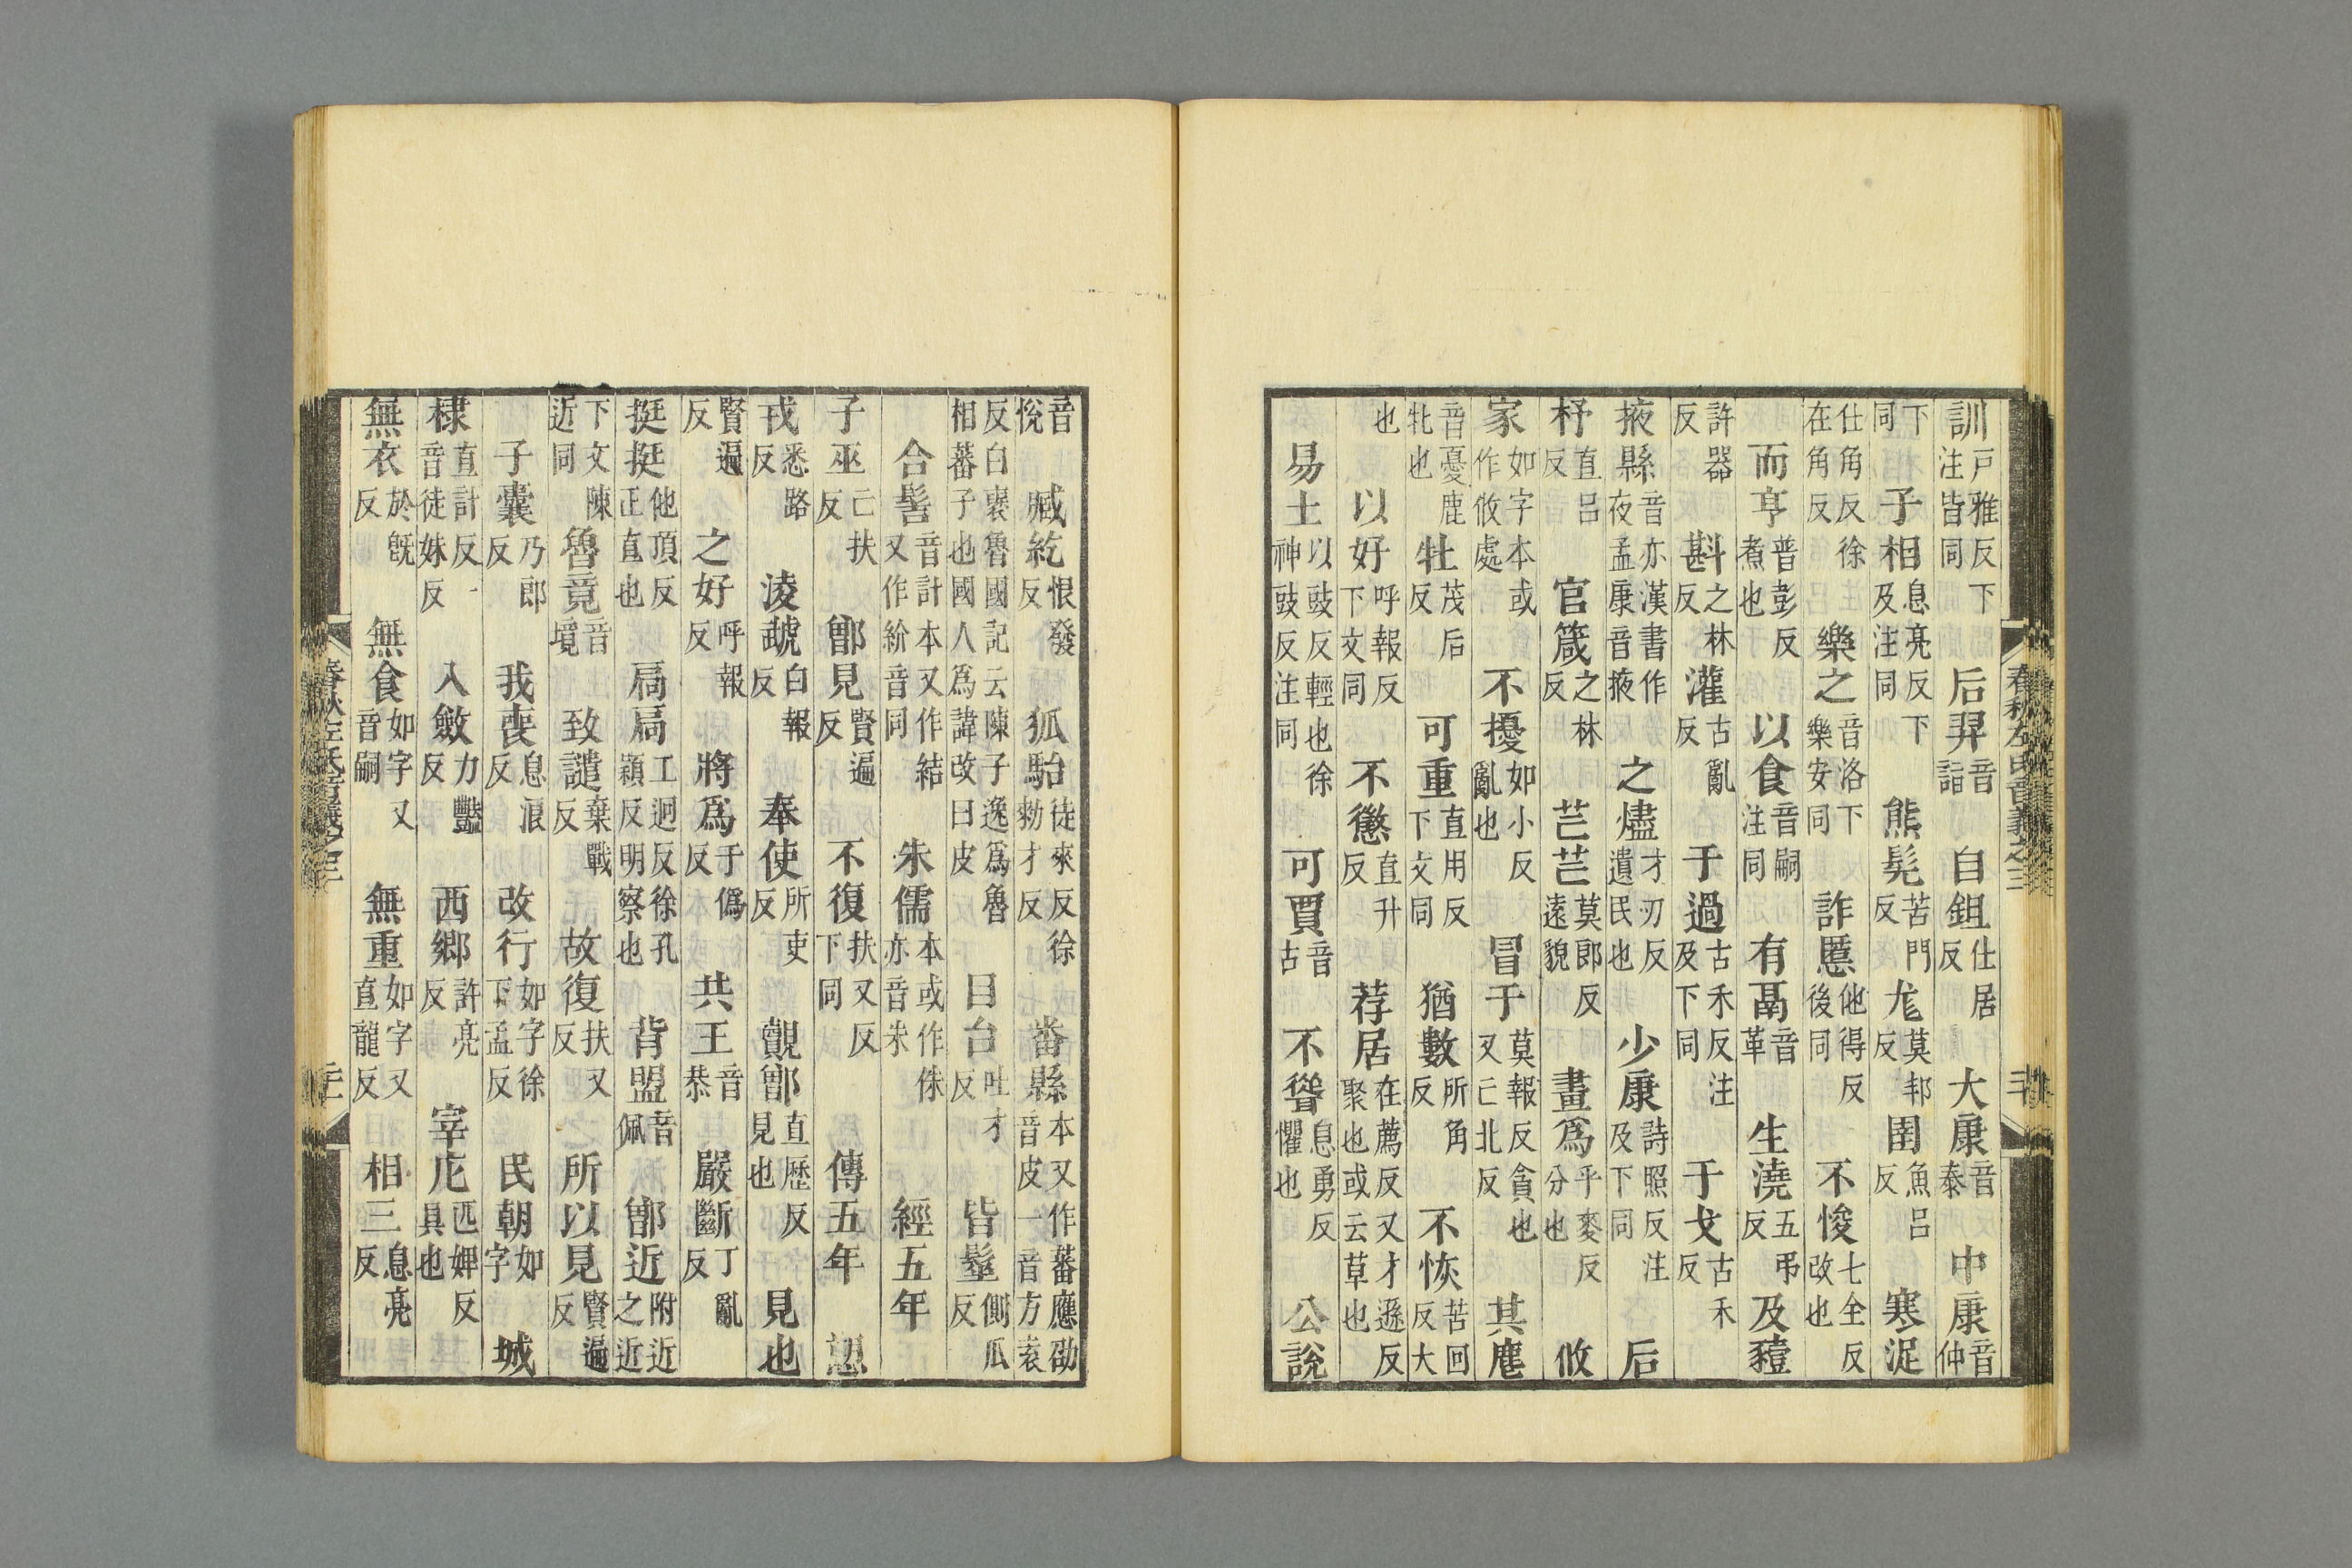 訓戸雅反下注皆同 后羿音詣 自鉏仕居反 大康音泰 中康音仲
下同 子相息亮反下及注同 熊髡苦門反 尨莫邦反 圉魚呂反 寒浞
仕角反徐在角反 樂之音洛下樂安同 詐慝他得反後同 不悛七全反改也
而亨普彭反煮也 以食音嗣注同 有鬲音革 生澆五弔反 及豷
許器反 斟之林反 灌古亂反 于過古禾反注及下同 于戈古禾反
掖縣音亦漢書作夜孟康音掖 之燼才刃反遺民也 少康詩照反注及下同 后
杼直呂反 官箴之林反 芒芒莫郎反遠貌 畫爲乎麥反分也 攸
家如字本或作攸處 不擾如小反亂也 冒于莫報反貪也又亡北反 其麀
音憂鹿牝也 牡茂后反 可重直用反下文同 猶數所角反 不恢苦回反大
也 以好呼報反下文同 不懲直升反 荐居在薦反又才遜反聚也或云草也
易土以豉反輕也徐神豉反注同 可賈音古 不聳息勇反懼也 公說
音悅 臧紇恨發反 狐駘徒來反徐勑才反 番縣本又作蕃應劭音皮一音方袁
反白裒魯國記云陳子逸爲魯相蕃子也國人爲諱改曰皮 目台吐才反 皆髽側瓜反
合髻音計本又作結又作紒音同 朱儒本或作侏亦音朱 經五年
子巫亡扶反 鄫見賢遍反 不復扶又反下同 傳五年 愬
戎悉路反 淩虣白報反 奉使所吏反 覿鄫直歷反見也 見也
賢遍反 之好呼報反 將爲于僞反 共王音恭 嚴斷丁亂反
挺挺他頂反正直也 扃扃工迥反徐孔穎反明察也 背盟音佩 鄫近附近之近
下文陳近同 魯竟音境 致譴棄戰反 故復扶又反 所以見賢遍反
子囊乃郎反 我喪息浪反 改行如字徐下孟反 民朝如字 城
棣直計反一音徒妹反 入斂力豔反 西鄉許亮反 宰庀匹婢反具也
無衣於旣反 無食如字又音嗣 無重如字又直龍反 相三息亮反
春秋左氏音義之三